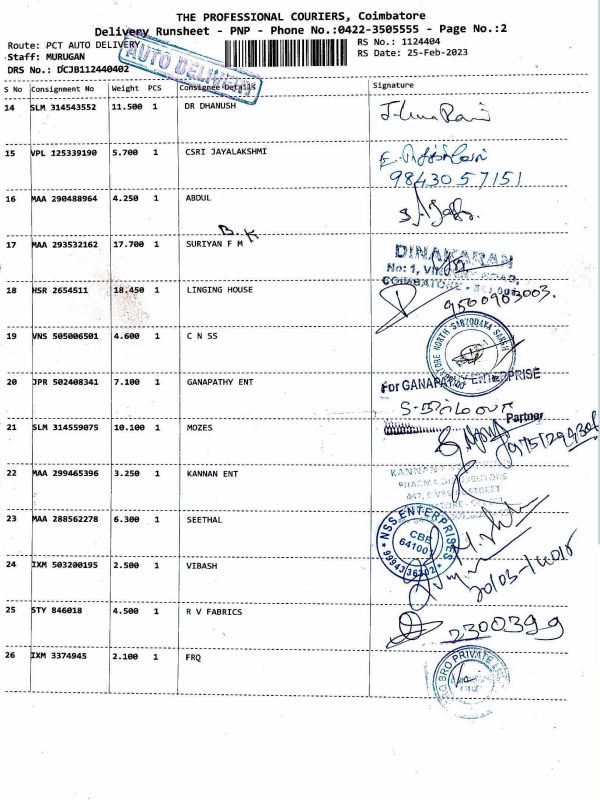 THE PROFESSIONAL COURIERS, Coimbatore
Delivery Runsheet - PNP - Phone No.:0422-3505555 - Page No.:2
Route: PCT AUTO DELIVERY RS No.: 1124404
Staff: MURUGAN RS Date: 25-Feb-2023
DRS No.: DCJB112440402
AUTO DELIVERY
S No Consignment No Weight PCS Consignee Details Signature
14 SLM 314543552 11.500 1 DR DHANUSH
15 VPL 125339190 5.700 1 CSRI JAYALAKSHMI
9843057151
16 MAA 290488964 4.250 1 ABDUL
B.K
17 MAA 293532162 17.700 1 SURIYAN F M
DINAKARAN
No: 1,
COIMBATORE
18 HSR 2654511 18.450 1 LINGING HOUSE
9500903003.
19 VNS 505006501 4.600 1 C N SS
NORTH SARVODAYA SANGH
20 JPR 502408341 7.100 1 GANAPATHY ENT
For GANAPATHY ENTERPRISE
Partner
21 SLM 314559075 10.100 1 MOZES
22 MAA 299465396 3.250 1 KANNAN ENT
KANNAN
STREET
23 MAA 288562278 6.300 1 SEETHAL
NSS ENTERPRISES
CBE
24 IXM 503200195 2.500 1 VIBASH
25 STY 846018 4.500 1 R V FABRICS
2300399
26 IXM 3374945 2.100 1 FRQ
BRO PRIVATE